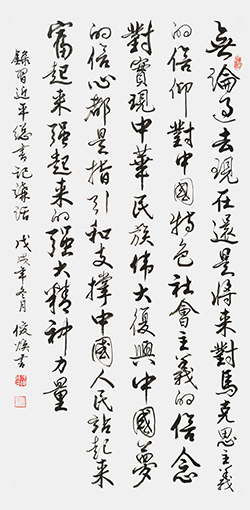 無論過去現在還是將来對馬克思主義
的信仰對中國特色社會主義的信念
對實現中華民族偉大復興中國夢
的信心都是指引和支撑中國人民站起来
富起来强起来的强大精神力量
錄習近平總書記講話 戊戌年冬月 俊 書